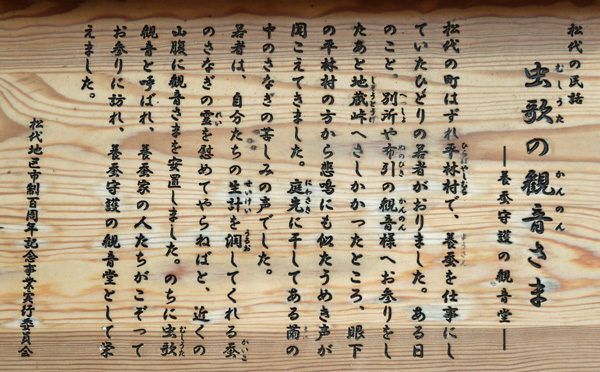 松代の民話
虫歌の観音さま
むしうた
かんのん
―養蚕守護の観音堂―
松代の町はずれ平林村で、養蚕を仕事にし
ひらばやしむら
ようさん
ていたひとりの若者がおりました。ある日
のこと。別所や布引の観音様へお参りをし
べっしょ
ぬのびき
かんのん
たあと地蔵峠へさしかかったところ、眼下
じぞうとうげ
の平林村の方から悲鳴にも似たうめき声が
聞こえてきました。庭先に干してある繭の
にわさき
まい
中のさなぎの苦しみの声でした。
若者は、自分たちの生計を潤してくれる蚕
せいけい
うるお
かいこ
のさなぎの霊を慰めてやらねばと、近くの
れい
山腹に観音さまを安置しました。のちに虫歌
むしうた
観音と呼ばれ、養蚕家の人たちがこぞって
お参りに訪れ、養蚕守護の観音堂として栄
えました。
松代地区市制百周年記念事業実行委員会